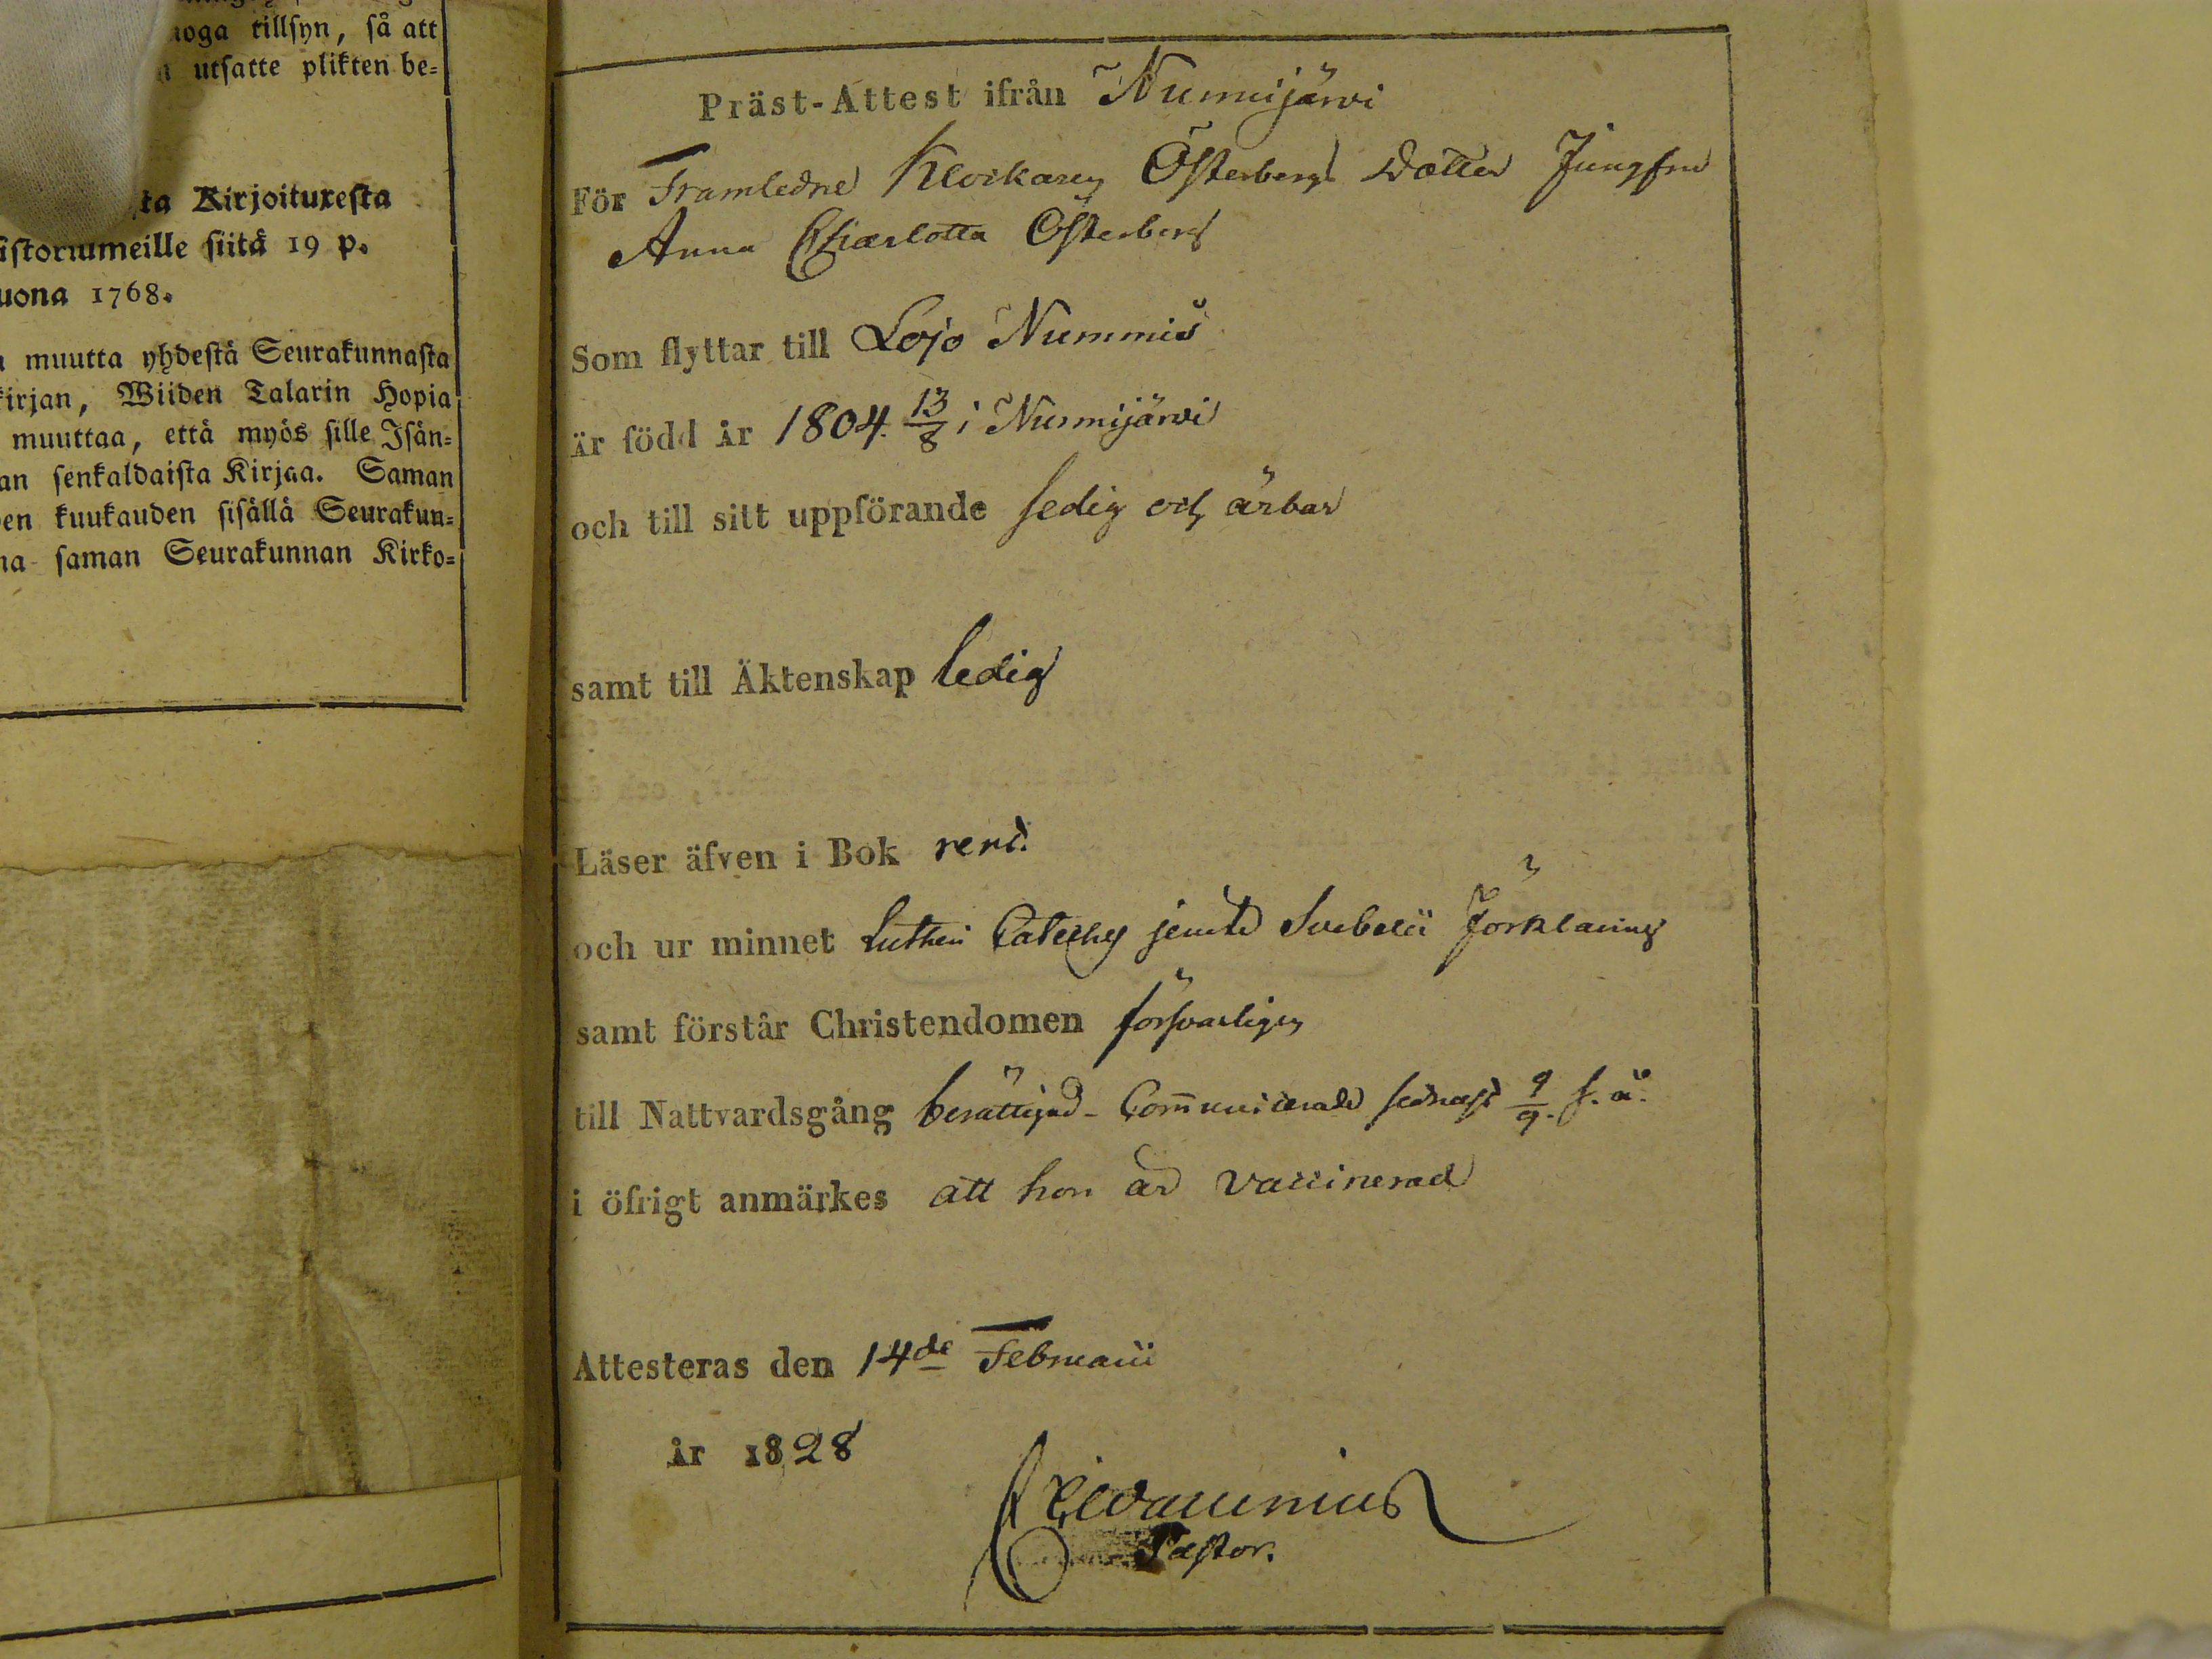 noga tillsyn, så att
utsatte plikten be-
sta Kirjoituxesta
istoriumeille siitä 19 p.
uona 1768.
muutta yhdestä Seurakunnasta
kirjan, Wiiden Talarin Hopia
muuttaa, että myös sille Isän-
an senkaldaista Kirjaa. Saman
en kuukauden sisällä Seurakun-
na saman Seurakunnan Kirko-
Präst-Attest ifrån Nurmijärvi
För Framledne Klockaren Österbergs Dotter Jungfru
Anna Charlotta Österberg
Som flyttar till Lojo Nummis
är född år 1804 13/8 i Nurmijärvi
och till sitt uppförande sedig och ärbar
samt till Äktenskap ledig
Läser äfven i Bok rent.
och ur minnet Lutheri Cateches jemte Svebelii Förklaring
samt förstår Christendomen försvarligen
till Nattvardsgång berättigad - Communicerade sednast 9/9. f. å.
i öfrigt anmärkes att hon är vaccinerad
Attesteras den 14de Februarii
år 1828
Pastor.